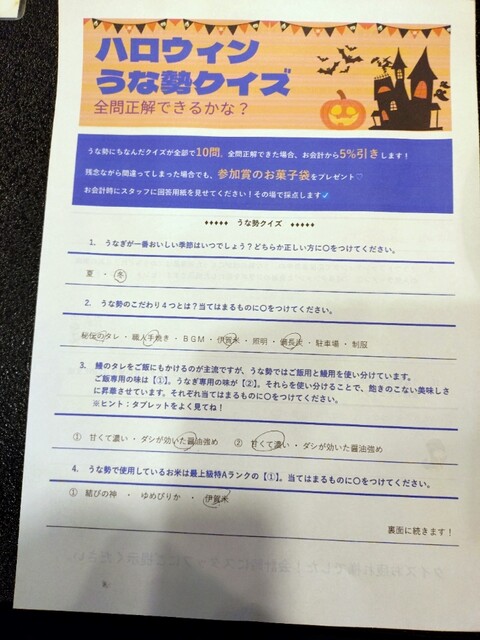 ハロウィン
うな勢クイズ
全問正解できるかな？
うな勢にちなんだクイズが全部で10問。全問正解できた場合、お会計から5%引きします！
残念ながら間違ってしまった場合でも、参加賞のお菓子袋をプレゼント♡
お会計時にスタッフに回答用紙を見せてください！その場で採点します✅
♦♦♦♦♦ うな勢クイズ ♦♦♦♦♦
1. うなぎが一番おいしい季節はいつでしょう？どちらか正しい方に〇をつけてください。
夏 ・ 冬
2. うな勢のこだわり４つとは？当てはまるものに〇をつけてください。
秘伝のタレ・職人手焼き・BGM・伊賀米・照明・備長炭・駐車場・制服
3. 鰻のタレをご飯にもかけるのが主流ですが、うな勢ではご飯用と鰻用を使い分けています。
ご飯専用の味は【①】。うなぎ専用の味が【②】。それらを使い分けることで、飽きのこない美味しさ
に昇華させています。それぞれ当てはまるものに〇をつけてください。
※ヒント：タブレットをよく見てね！
① 甘くて濃い・ダシが効いた醤油強め ② 甘くて濃い・ダシが効いた醤油強め
4. うな勢で使用しているお米は最上級特Aランクの【①】。当てはまるものに〇をつけてください。
① 結びの神 ・ ゆめぴりか ・ 伊賀米
裏面に続きます！